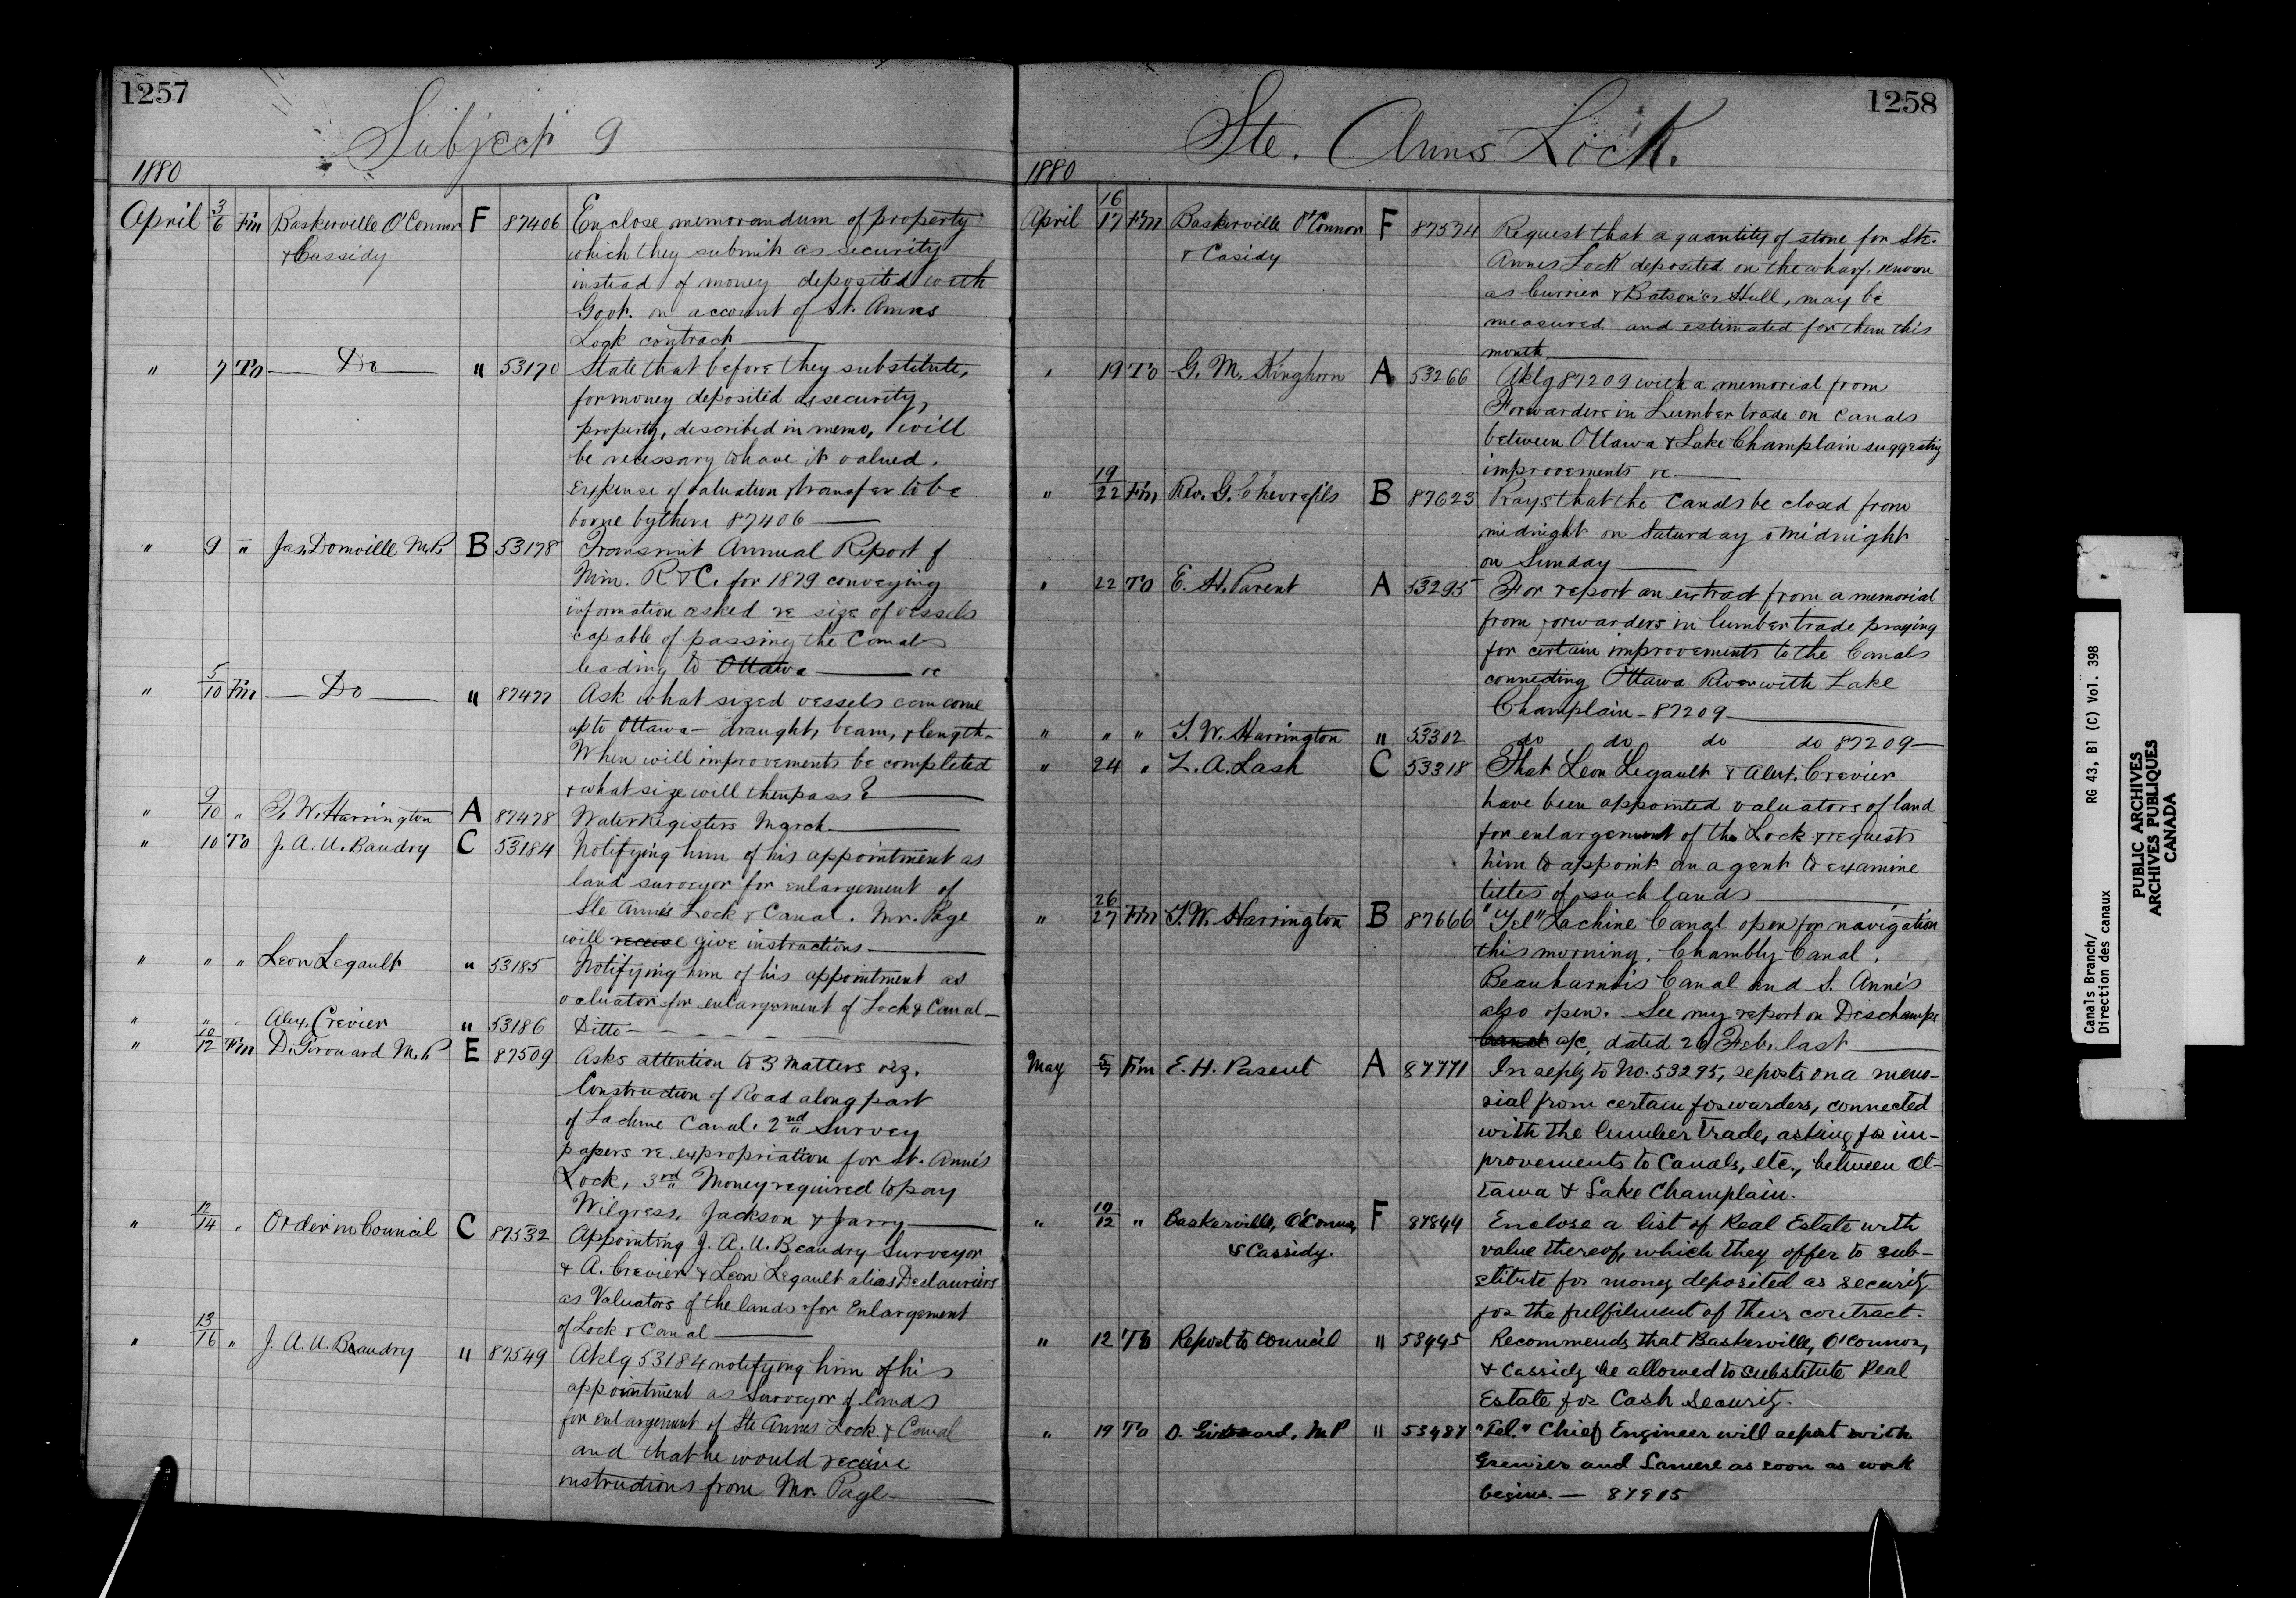 1257
Subject 9
1880
April 3/6 Fm Baskerville O'Connor F 87406 Enclose memorandum of property
& Cassidy which they submit as security
instead of money deposited with
Govt. on account of St. Annes
Lock contract
" 7 To Do " 53170 State that before they substitute,
for money deposited as security,
property, described in memo, will
be necessary to have it valued.
Expense of valuation & transfer to be
borne by them 87406
" 9 " Jas. Domville M.P. B 53178 Transmit Annual Report of
Min. R & C. for 1879 conveying
information asked re size of vessels
capable of passing the Canals
leading to Ottawa re
" 5/10 Fm Do " 87477 Ask what sized vessels can come
up to Ottawa - draught, beam, & length.
When will improvements be completed
& what size will then pass?
" 9/10 " T. W. Harrington A 87478 Water Registers March
" 10 To J. A. U. Baudry C 53184 Notifying him of his appointment as
land surveyor for enlargement of
Ste Anne's Lock & Canal. Mr. Page
will receive give instructions
" " " Leon Legault " 53185 Notifying him of his appointment as
valuator for enlargement of Lock & Canal
" " " Alex. Crevier " 53186 Ditto
" 10/12 Fm D. Girouard M.P E 87509 Asks attention to 3 matters viz.
Construction of Road along part
of Lachine Canal. 2nd Survey
papers re expropriation for St. Anne's
Lock, 3rd Money required to pay
Wilgress, Jackson & Jarry
" 12/14 " Order in Council C 87532 Appointing J. A. U. Beaudry Surveyor
& A. Crevier & Leon Legault alias Deslauriers
as Valuators of the lands for Enlargement
of Lock & Canal
" 13/16 " J. A. U. Beaudry " 87549 Aklg 53184 notifying him of his
appointment as Surveyor of lands
for enlargement of Ste Annes Lock & Canal
and that he would receive
instructions from Mr. Page
1258
Ste. Anns Lock.
1880
April 16/17 Fm Baskerville O'Connor F 87574 Request that a quantity of stone for Ste.
& Casidy Annes Lock deposited on the wharf known
as Currier & Batson'es Hull, may be
measured and estimated for them this
month
" 19 To G. M. Kinghorn A 53266 Aklg 87209 with a memorial from
Forwarders in Lumber trade on canals
between Ottawa & Lake Champlain suggesting
improvements re
" 19/22 Fm Rev. G. Chevrefils B 87623 Prays that the Canals be closed from
midnight on Saturday to midnight
on Sunday
" 22 To E. H. Parent A 53295 For report an extract from a memorial
from forwarders in lumber trade praying
for certain improvements to the Canals
connecting Ottawa River with Lake
Champlain - 87209
" " " T. W. Harrington " 53302 do do do do 87209
" 24 " Z. A. Lash C 53318 That Leon Legault & Alex. Crevier
have been appointed valuators of land
for enlargement of the Lock & requests
him to appoint an agent to examine
titles of such lands
" 26/27 Fm T. W. Harrington B 87666 "Tel" Lachine Canal open for navigation
this morning. Chambly Canal,
Beauharnois Canal and S. Anne's
also open. See my report on Deschamps
a/c, dated 26 Feb. last
May 5/7 Fm E. H. Parent A 87771 In reply to No. 53295, reports on a memo-
rial from certain forwarders, connected
with the lumber trade, asking for im-
provements to Canals, etc., between Ot-
tawa & Lake Champlain.
" 10/12 " Baskerville, O'Connor, F 87844 Enclose a list of Real Estate with
& Cassidy. value thereof, which they offer to sub-
stitute for money deposited as security
for the fulfilment of their contract.
" 12 To Report to Council " 53445 Recommends that Baskerville, O'Connor,
& Cassidy be allowed to substitute Real
Estate for Cash Security.
" 19 To D. Girouard, M P " 53487 "Tel." Chief Engineer will report with
Grenier and Lamere as soon as work
begins. — 87915
Canals Branch/ RG 43, B1 (C) Vol. 398
Direction des canaux
PUBLIC ARCHIVES
ARCHIVES PUBLIQUES
CANADA